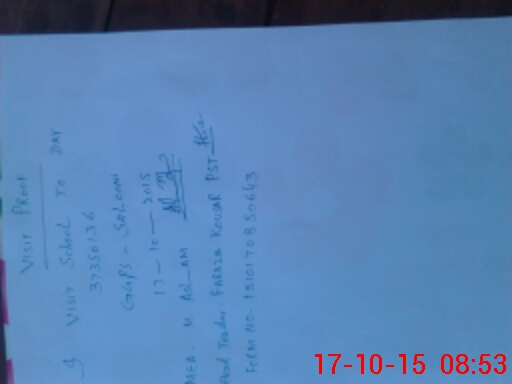 VISIT PROOF
I VISIT SCHOOL TO DAY
37350136
GGPS - SALOONI
17-10-2015
MEA. M ASLAM
Head Teacher FARAZA KOUSAR PST
FORM NO. 1510170850643
17-10-15 08:53